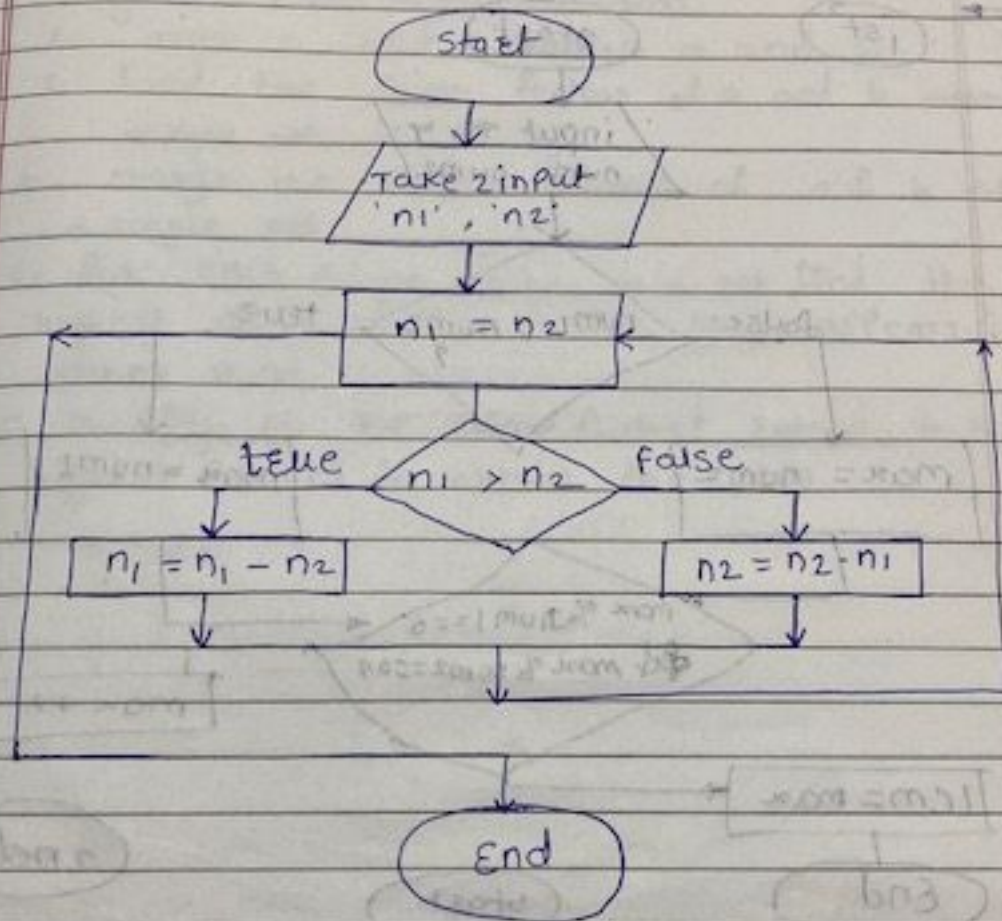 Start
Take 2 input
'n1', 'n2'
n1 = n2
n1 > n2
true
false
n1 = n1 - n2
n2 = n2 - n1
End